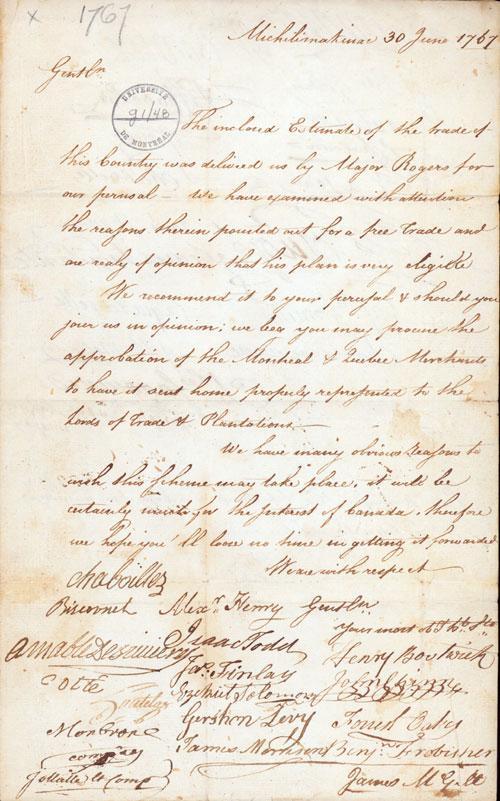 x 1767
Michilimakinac 30 June 1767
Gentln
UNIVERSITÉ
91/48
DE MONTREAL
The inclosed Estimate of the trade of
this Country was deliverd us by Major Rogers for
our perusal – We have examined with attention
the reasons therein pointed out for a free Trade and
are realy of opinion that his plan is very eligible
We recommend it to your perusal & should you
join us in opinion; we beg you may procure the
approbation of the Montreal & Quebec Merchants
to have it sent home properly represented to the
Lords of Trade & Plantations –
We have many obvious reasons to
wish this Scheme may take place, it will be
certainly much for the Interest of Canada, therefore
we hope you'll loose no time in getting it forwarded
We are with respect
Chaboillez
Bisconnet Alexr. Henry Gentln
Your most Obt Hble
Isaac Todd
Henry Bostwick
Jas. Finlay
Cotté
Ezekiel Solomon
Gershon Levy Forrest Oakes
Monbrone
James Morrison Benjn. Frobisher
compag
et Comp James McGill